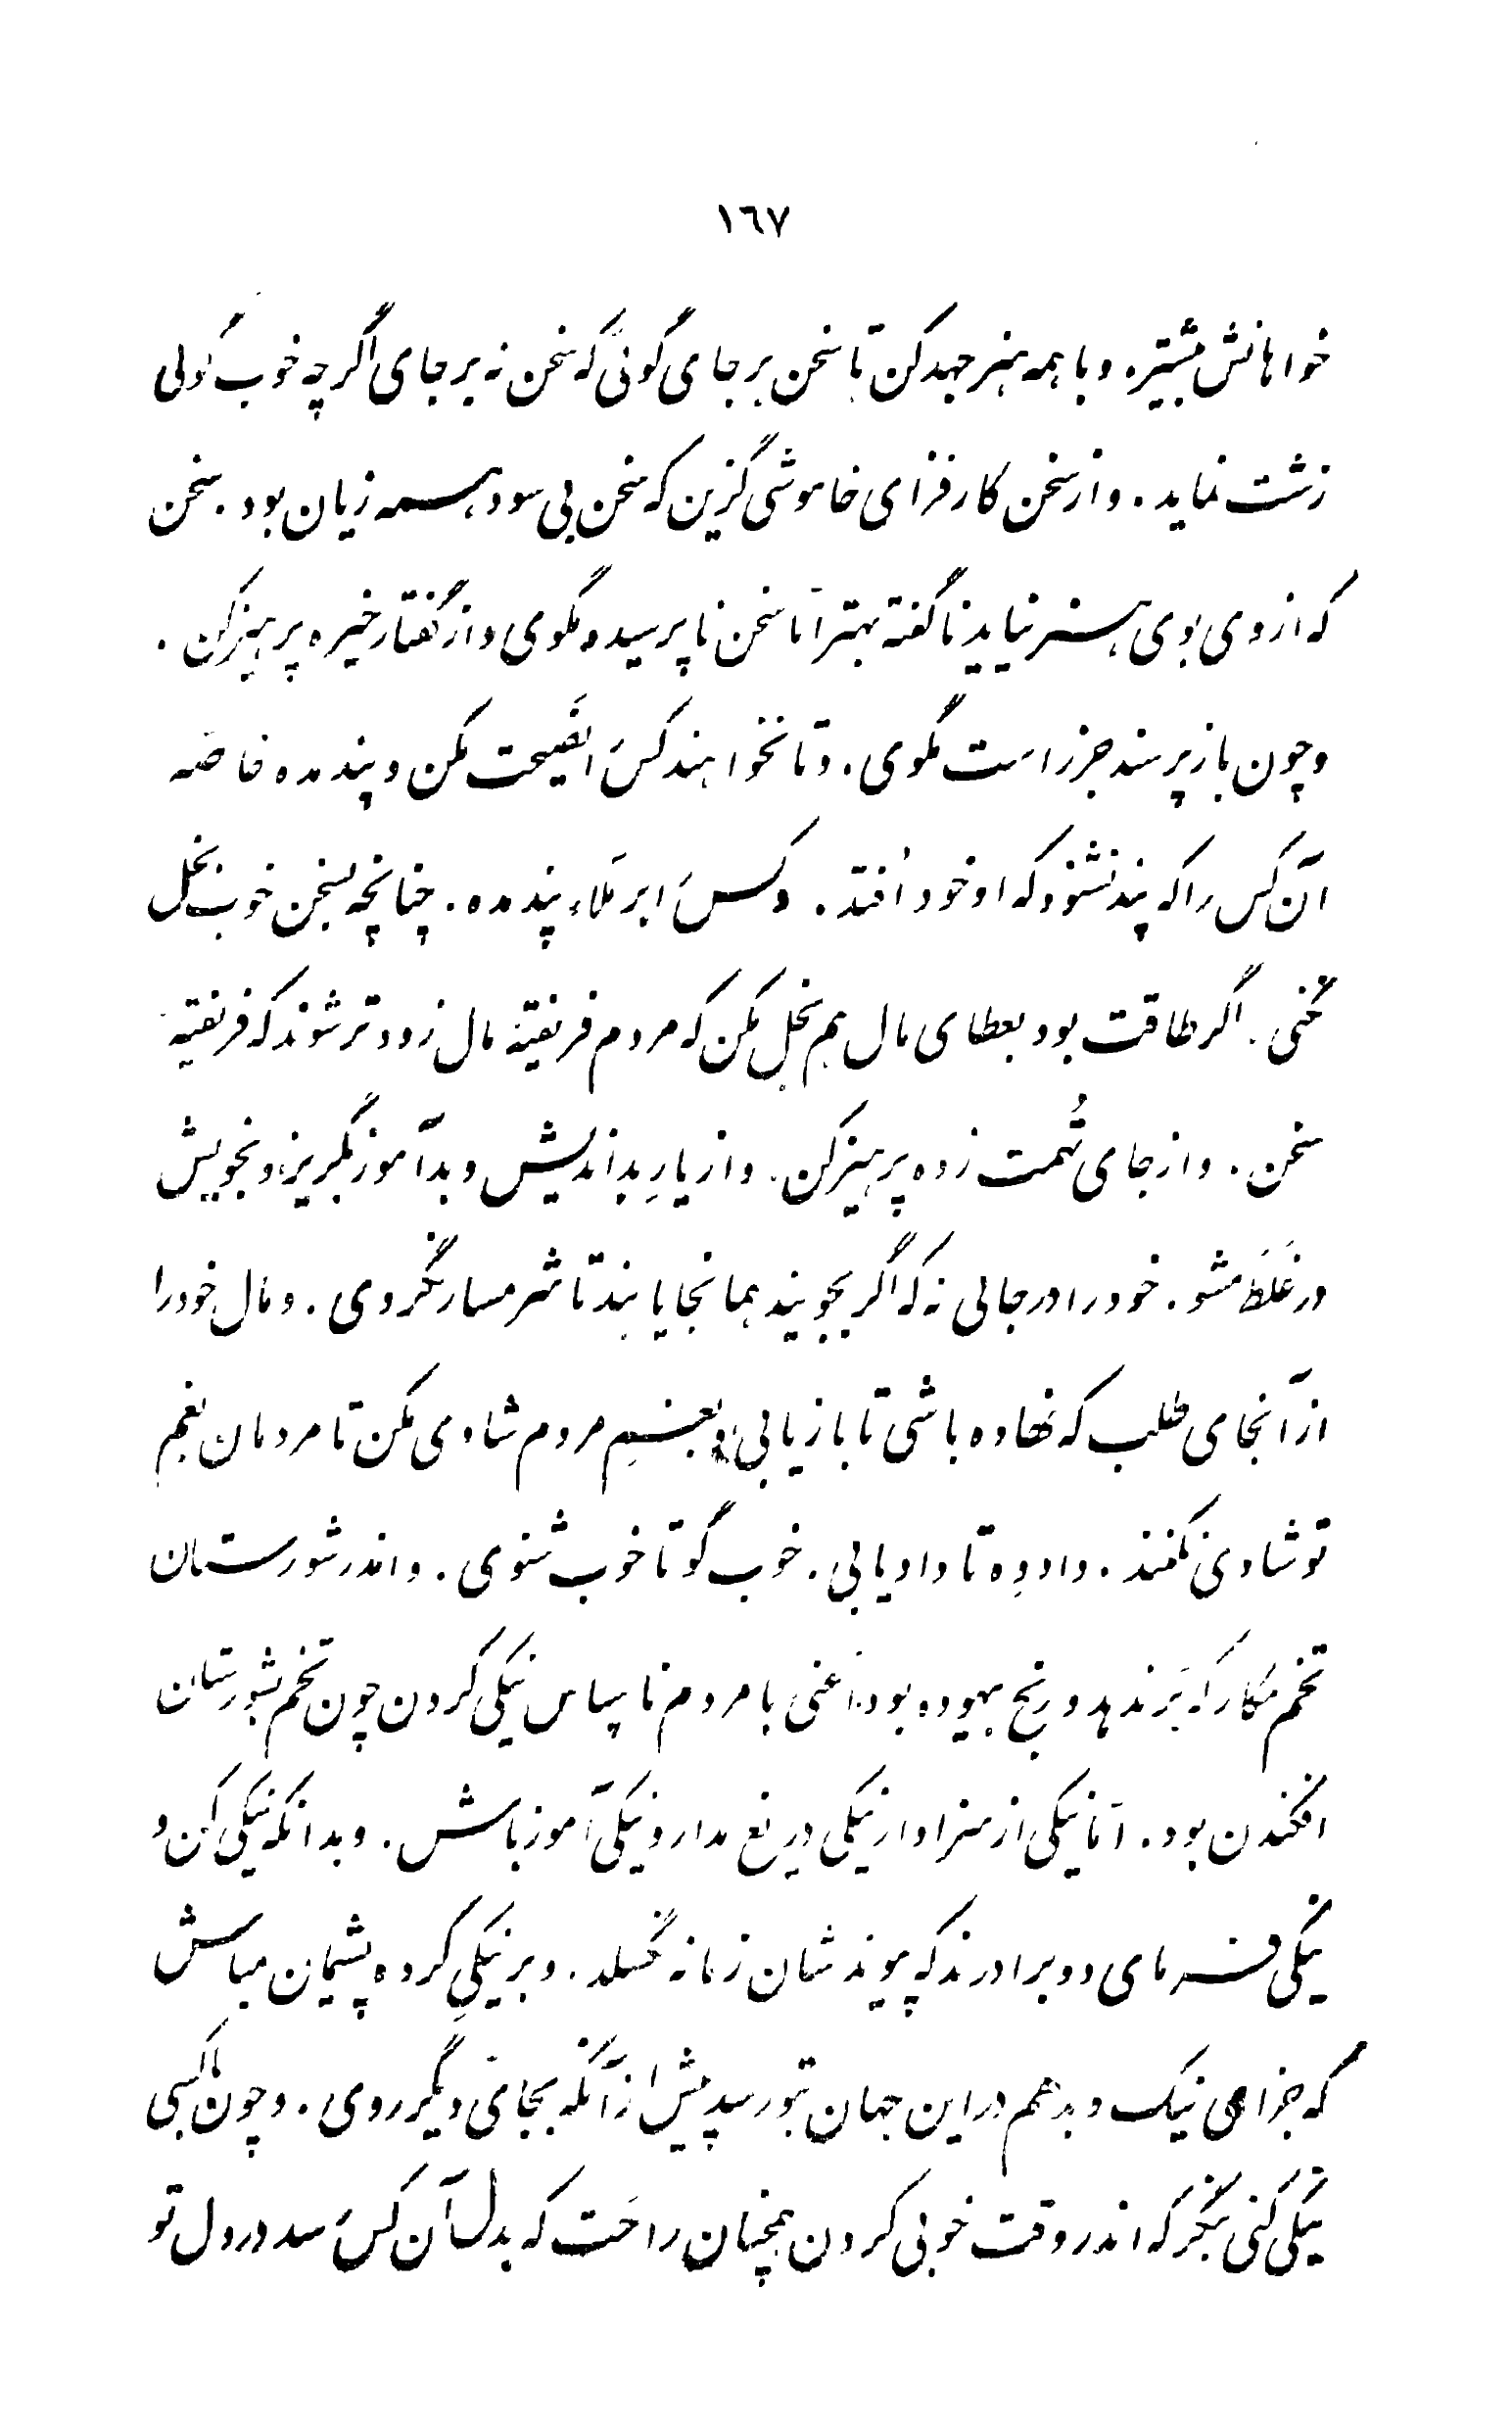 ١٦٧
خواهانش بیشتر. و با همه هنر جهد کن تا سخن بر جای گوئی که سخن نه بر جای اگرچه خوب گوئی
زشت نماید. و از سخن کار فزای خاموشی گزین که سخن بی سود همه زیان بود. سخن
که از وی بوی هنر نیاید ناگفته بهتر اما سخن ناپرسیده مگوی و از گفتار خیره پرهیز کن.
و چون باز پرسند جز راست مگوی. و تا نخواهند کس را نصیحت مکن و پند مده خاصّه
آن کس را که پند نشنود که او خود اُفتد. و کس را بر مَلاء پند مده. چنانچه بسخن خوب بخل
نکنی. اگر طاقت بود بعطای مال هم بخل مکن که مردم فریفتهٔ مال زودتر شوند که فریفتهٔ
سخن. و از جای تُهمت زده پرهیز کن. و از یارِ بداندیش و بدآموز بگریز و بخویش
در غَلَط مشو. خود را در جائی نه که اگر بجویند همانجا یابند تا شرمسار نگردی. و مال خود را
از آنجای طلب که نهاده باشی تا باز یابی و بغمِ مردم شادی مکن تا مردمان بغم
تو شادی نکنند. داد دِه تا داد یابی. خوب گو تا خوب شنوی. و اندر شورستان
تخم مکار که بَر ندهد و رنج بیهوده بود اعنی با مردم ناسپاس نیکی کردن چون تخم بشورستان
افکندن بود. امّا نیکی از سزاوار نیکی دریغ مدار و نیکی آموز باش. و بدانکه نیکی کن و
نیکی فرمای دو برادرند که پیوندشان زمانه نگسلد. و بر نیکیِ کرده پشیمان مباش
که جزاهی نیک و بد هم در این جهان بتو رسد پیش از آنکه بجای دیگر روی. و چون باکسی
نیکی کنی بنگر که اندر وقت خوبی کردن همچنان راحت که بدل آن کس رسد در دل تو